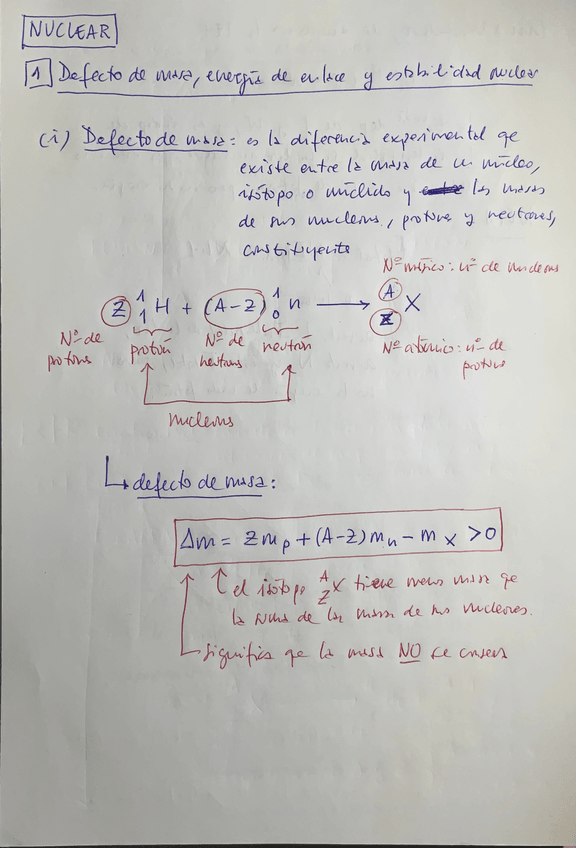 NUCLEAR
1 Defecto de masa, energía de enlace y estabilidad nuclear
(i) Defecto de masa: es la diferencia experimental que
existe entre la masa de un núcleo,
isótopo o núclido y las masas
de sus nucleones, protones y neutrones,
constituyente
Nº másico: nº de nucleones
Z ¹₁H + (A-Z) ¹₀n ⟶ ᴬ_Z X
Nº de protones
protón
Nº de neutrones
neutrón
Nº atómico: nº de protones
nucleones
↳ defecto de masa:
Δm = Z mₚ + (A-Z) mₙ - m_X > 0
el isótopo ᴬ_Z X tiene menos masa que
la suma de las masas de sus nucleones.
significa que la masa NO se conserva